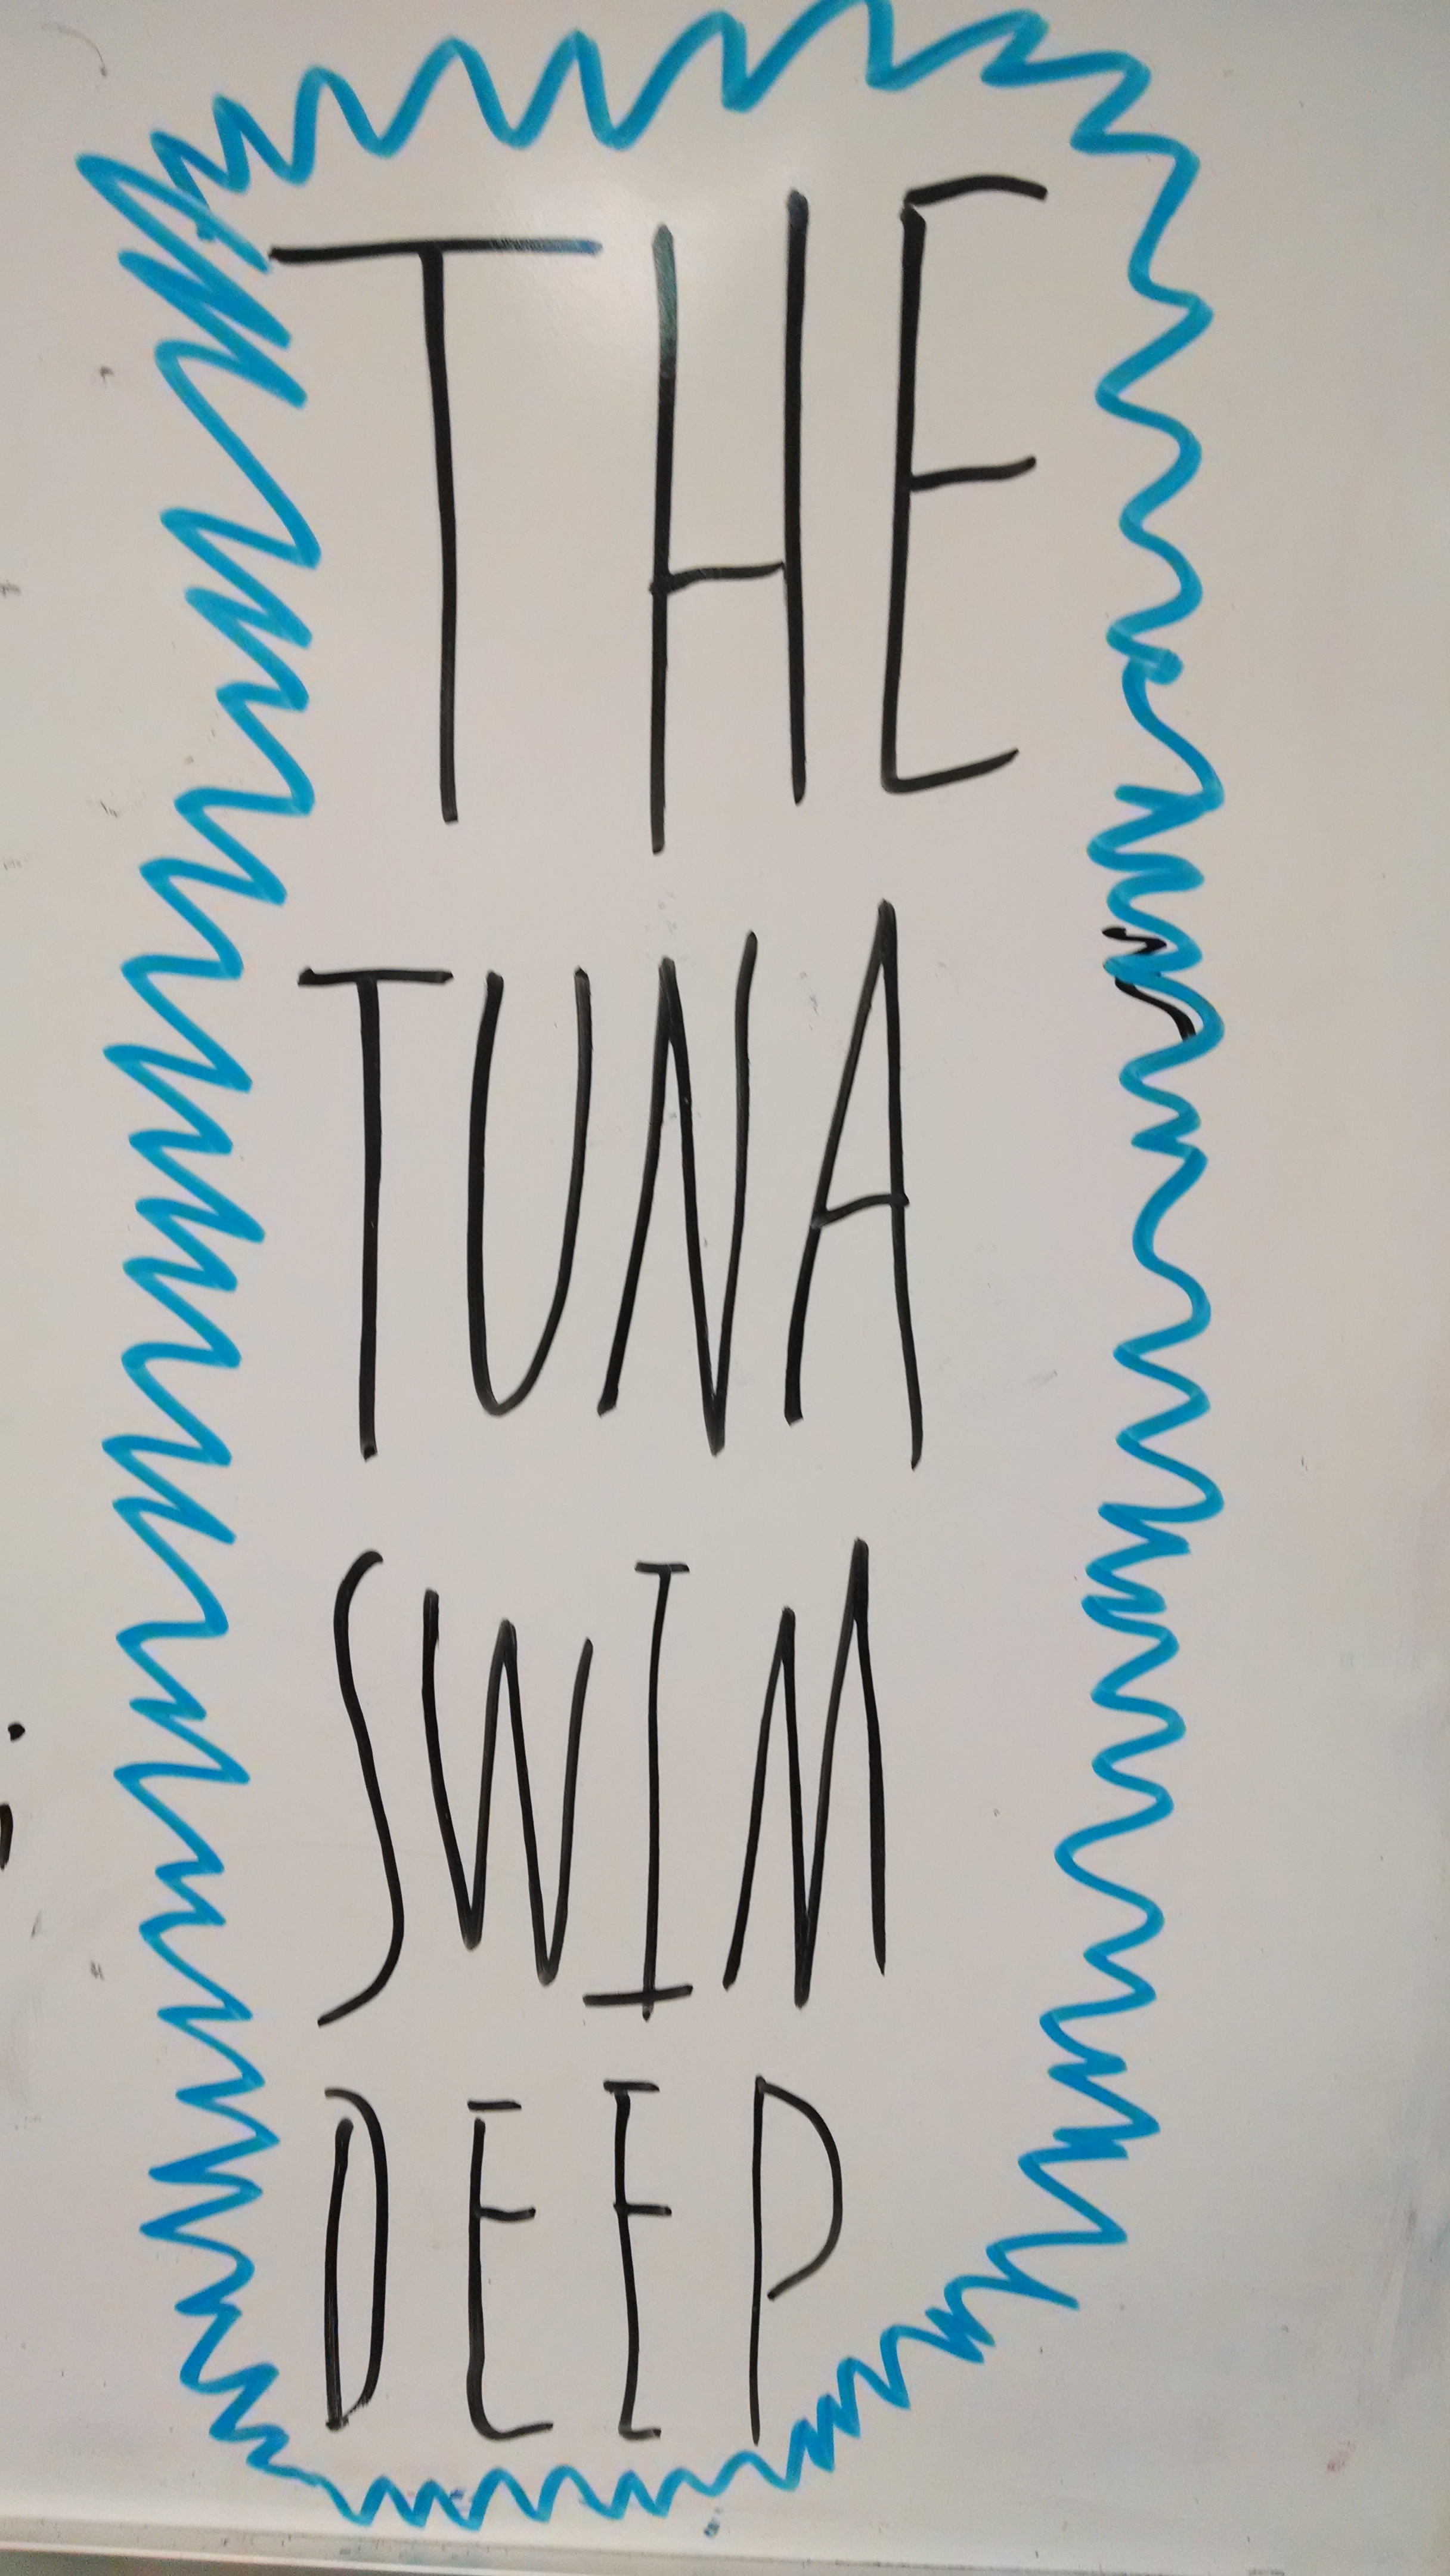 THE
TUNA
SWIM
DEEP